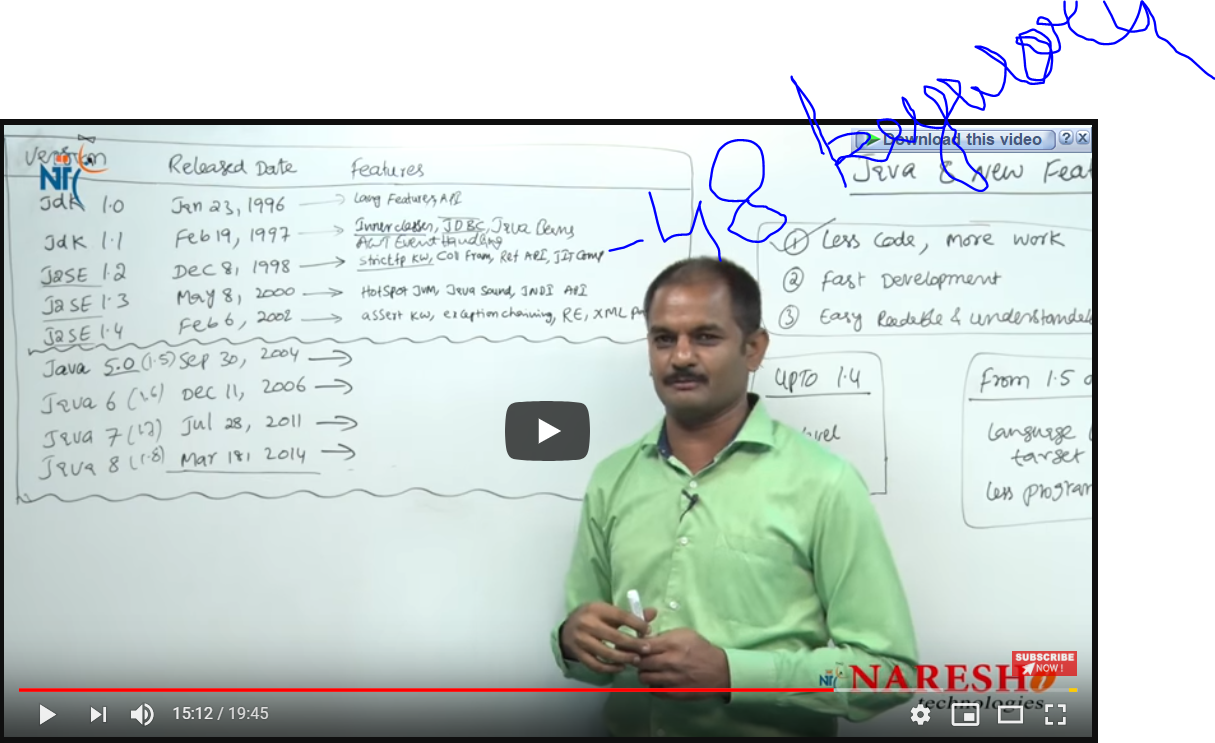 48 keywords
Download this video
Version Released Date Features
NT
Jdk 1.0 Jan 23, 1996 Lang Features, API
Jdk 1.1 Feb 19, 1997 Inner classes, JDBC, Java Beans
AWT Event Handling
J2SE 1.2 Dec 8, 1998 strictfp KW, Coll Fram, Ref API, JIT Comp
J2SE 1.3 May 8, 2000 HotSpot JVM, Java Sound, JNDI API
J2SE 1.4 Feb 6, 2002 assert KW, exception chaining, RE, XML
Java 5.0 (1.5) Sep 30, 2004
Java 6 (1.6) Dec 11, 2006
Java 7 (1.7) Jul 28, 2011
Java 8 (1.8) Mar 18, 2014
Java 8 New Feat
1 Less Code, More Work
2 Fast Development
3 Easy Readable &
UPTO 1.4
From 1.5
Language
target
less program
SUBSCRIBE
NOW!
NT NARESH i
technologies
15:12 / 19:45